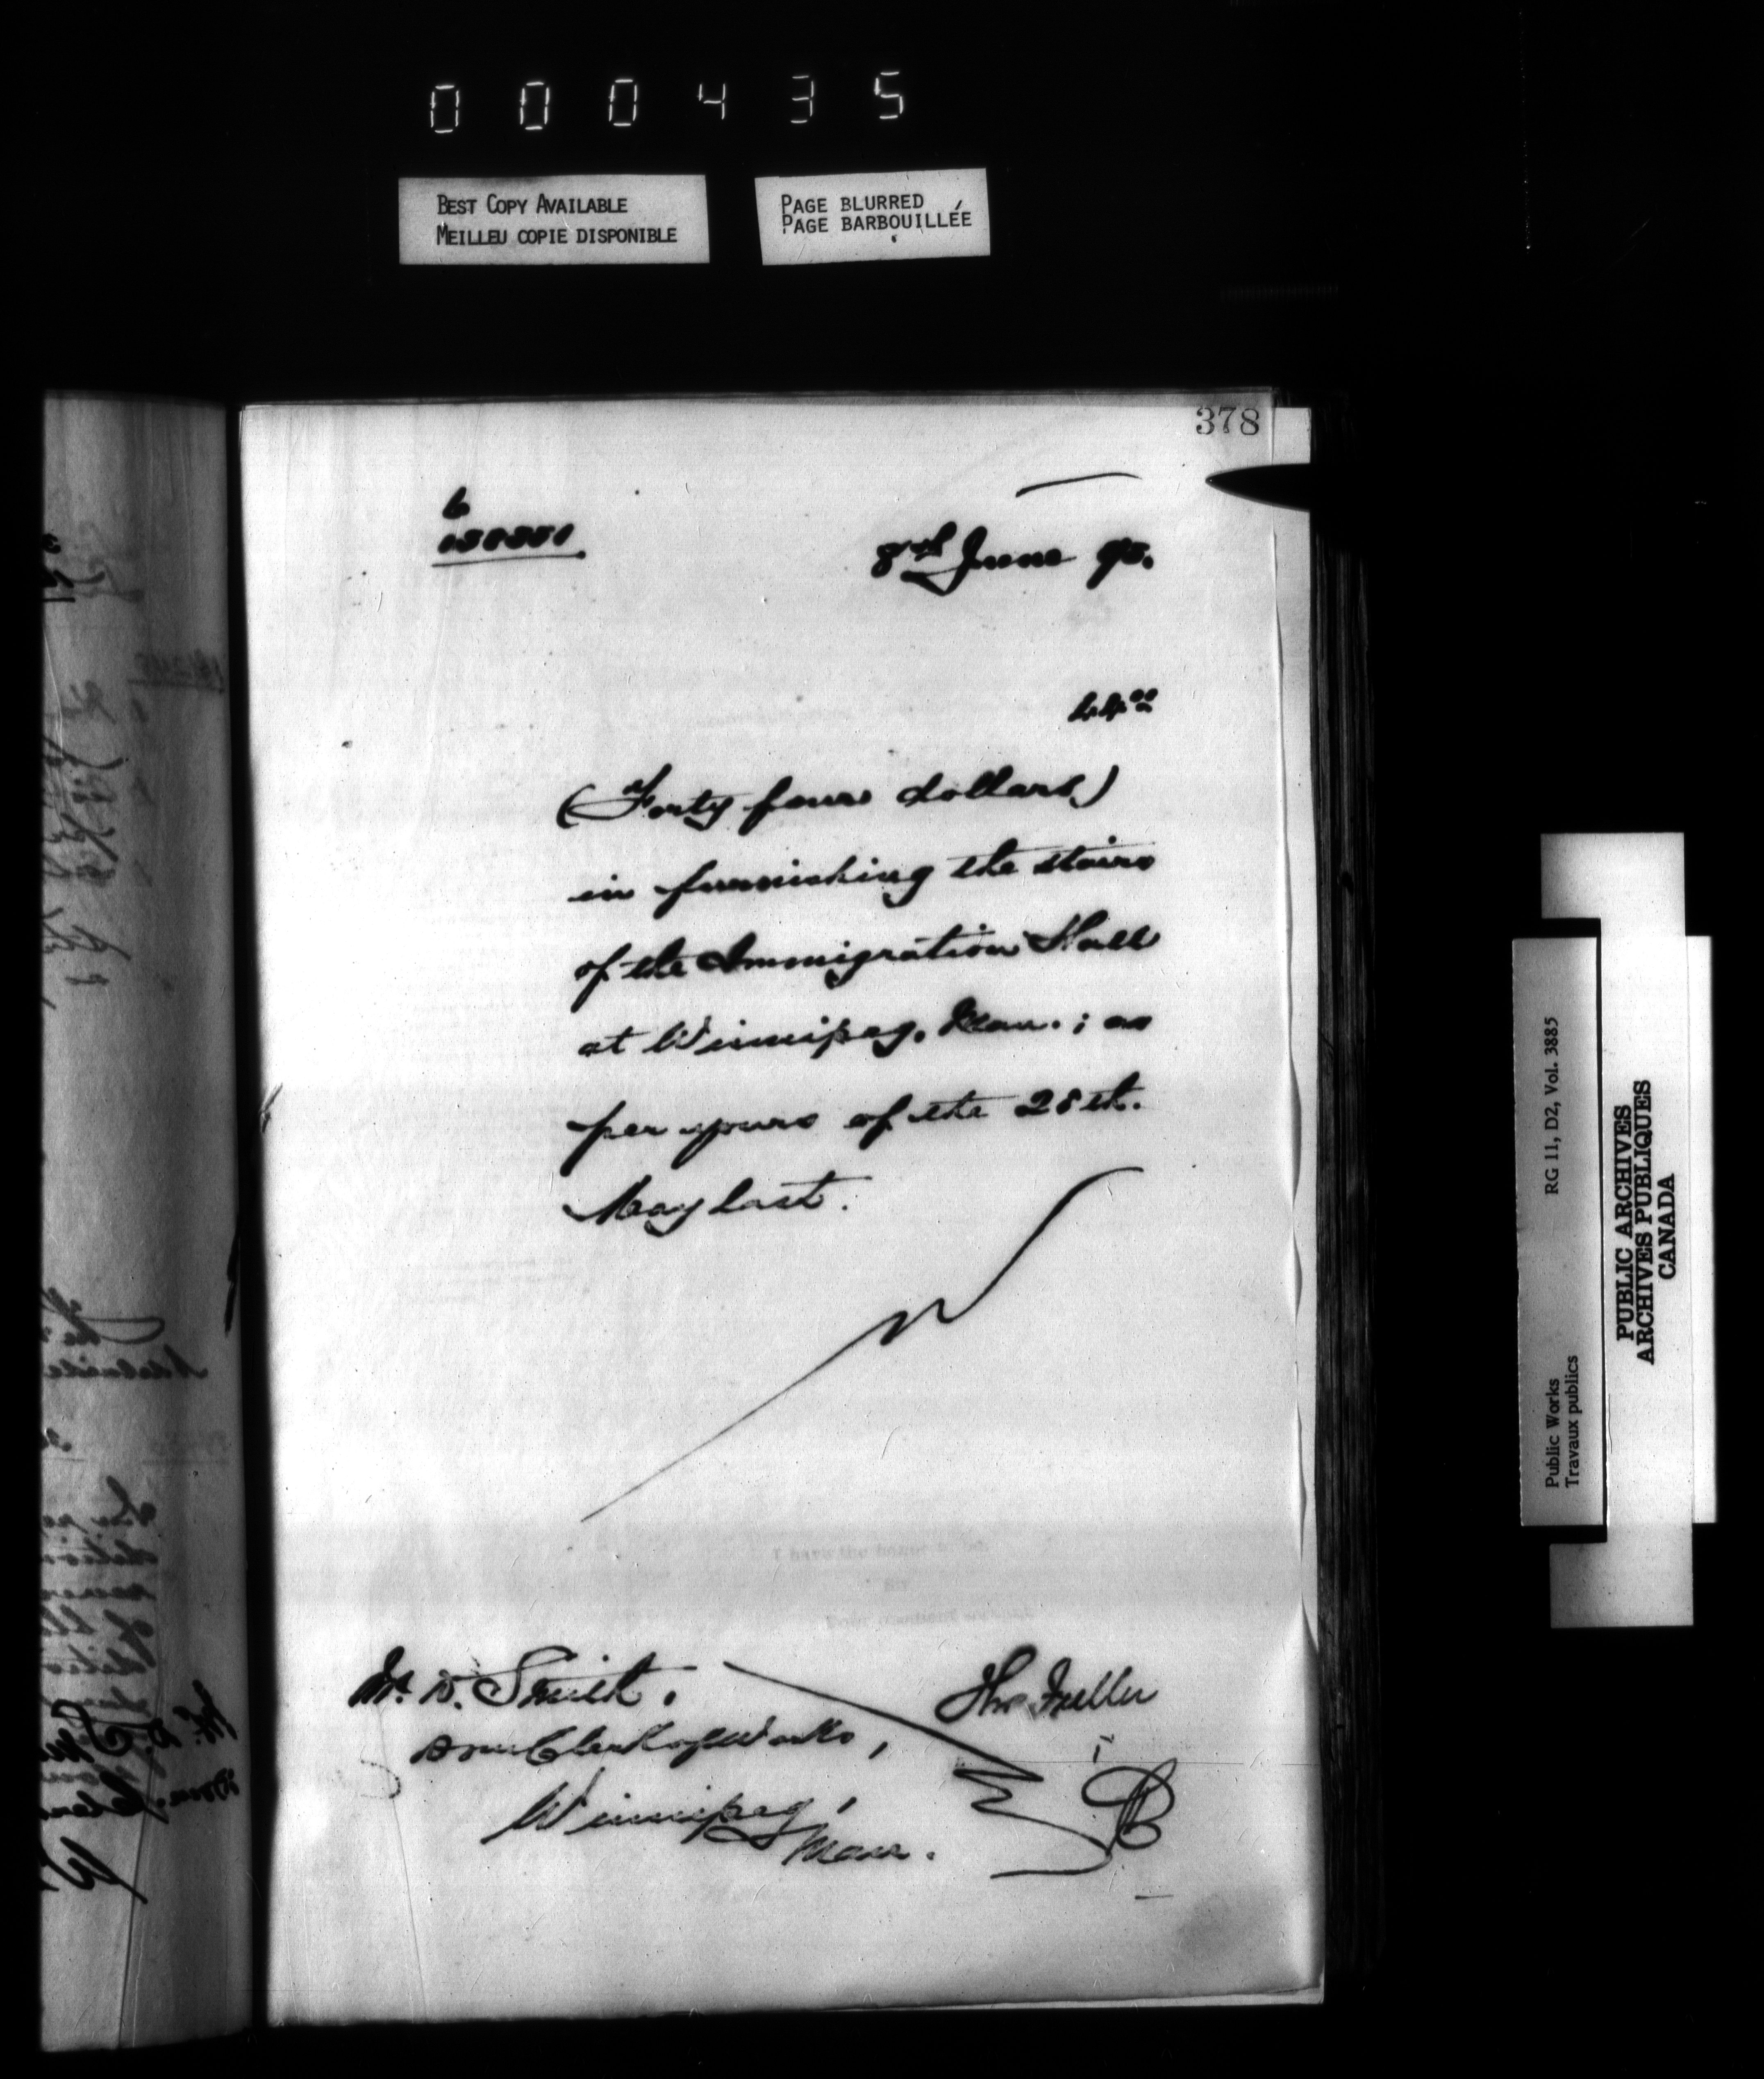 000435
BEST COPY AVAILABLE
MEILLEU COPIE DISPONIBLE
PAGE BLURRED
PAGE BARBOUILLÉE
378
8th June 95.
44.00
(Forty four dollars)
in furnishing the stairs
of the Immigration Hall
at Winnipeg, Man.; as
per yours of the 28th.
May last.
I have the honor to be,
Sir
Your obedient servant
Mr. D. Smith,
Dom Clerk of Works,
Winnipeg,
Man.
Thos Fuller
Public Works
Travaux publics
RG 11, D2, Vol. 3885
PUBLIC ARCHIVES
ARCHIVES PUBLIQUES
CANADA